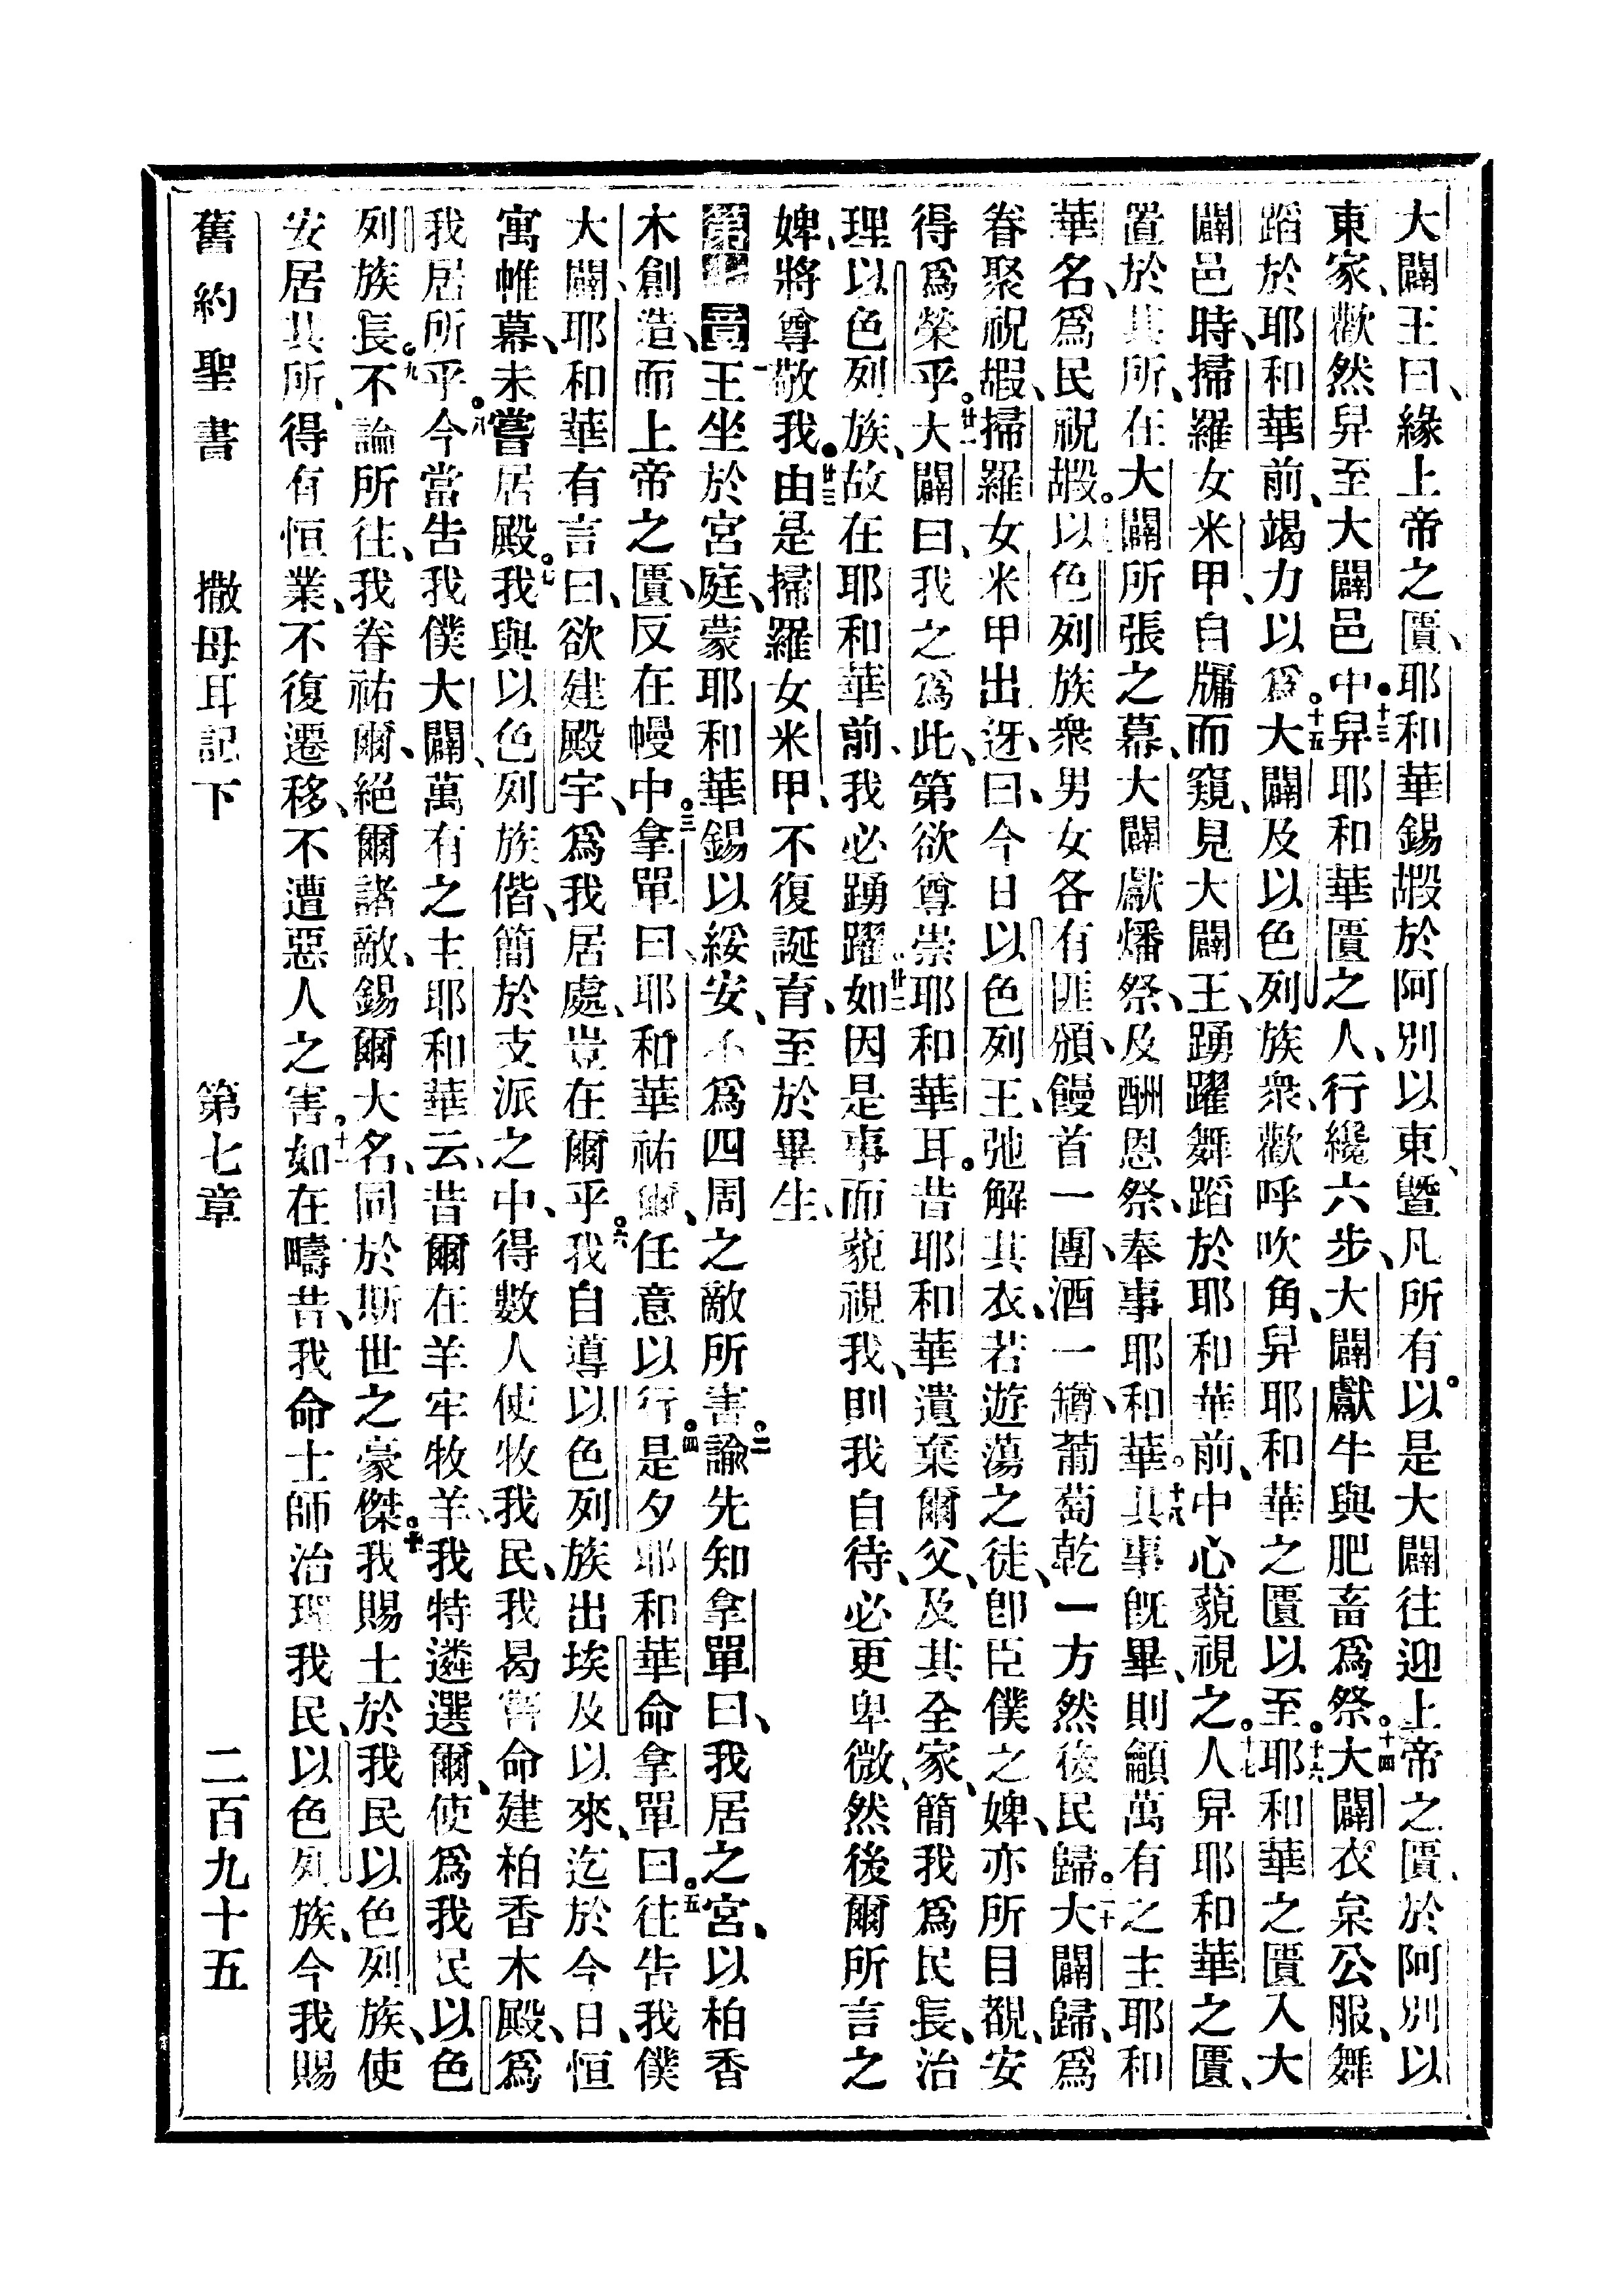 大闢王曰、緣上帝之匱、耶和華錫嘏於阿別以東、曁凡所有。以是大闢往迎上帝之匱、於阿別以
東家、歡然舁至大闢邑中。十三舁耶和華匱之人、行纔六步、大闢獻牛與肥畜爲祭。十四大闢衣枲公服、舞
蹈於耶和華前、竭力以爲。十五大闢及以色列族衆、歡呼吹角、舁耶和華之匱以至。十六耶和華之匱入大
闢邑時、掃羅女米甲、自牖而窺、見大闢王、踴躍舞蹈於耶和華前、中心藐視之。十七人舁耶和華之匱、
置於其所、在大闢所張之幕、大闢獻燔祭、及酬恩祭、奉事耶和華。十八其事旣畢、則籲萬有之主耶和
華名、爲民祝嘏。以色列族衆男女各有匪頒、饅首一團、酒一罇、葡萄乾一方、然後民歸。二十大闢歸、爲
眷聚祝嘏、掃羅女米甲出迓、曰、今日以色列王、弛解其衣、若遊蕩之徒、卽臣僕之婢、亦所目覩、安
得爲榮乎。廿一大闢曰、我之爲此、第欲尊崇耶和華耳。昔耶和華遺棄爾父、及其全家、簡我爲民長、治
理以色列族、故在耶和華前、我必踴躍。廿二如因是事而藐視我、則我自待、必更卑微、然後爾所言之
婢、將尊敬我。廿三由是掃羅女米甲、不復誕育、至於畢生、
第七章一王坐於宮庭、蒙耶和華錫以綏安、不爲四周之敵所害。二諭先知拿單曰、我居之宮、以柏香
木創造、而上帝之匱、反在幔中。三拿單曰、耶和華祐爾、任意以行。四是夕耶和華命拿單曰、五往告我僕
大闢、耶和華有言曰、欲建殿宇、爲我居處、豈在爾乎。六我自導以色列族出埃及以來、迄於今日、恒
寓帷幕、未嘗居殿。七我與以色列族偕、簡於支派之中、得數人使牧我民、我曷嘗命建柏香木殿、爲
我居所乎。八今當告我僕大闢、萬有之主耶和華云、昔爾在羊牢牧羊、我特遴選爾、使爲我民以色
列族長。九不論所往、我眷祐爾、絕爾諸敵、錫爾大名、同於斯世之豪傑。十我賜土於我民以色列族、使
安居其所、得有恒業、不復遷移、不遭惡人之害。十一如在疇昔、我命士師治理我民、以色列族、今我賜
舊約聖書 撒母耳記下 第七章 二百九十五